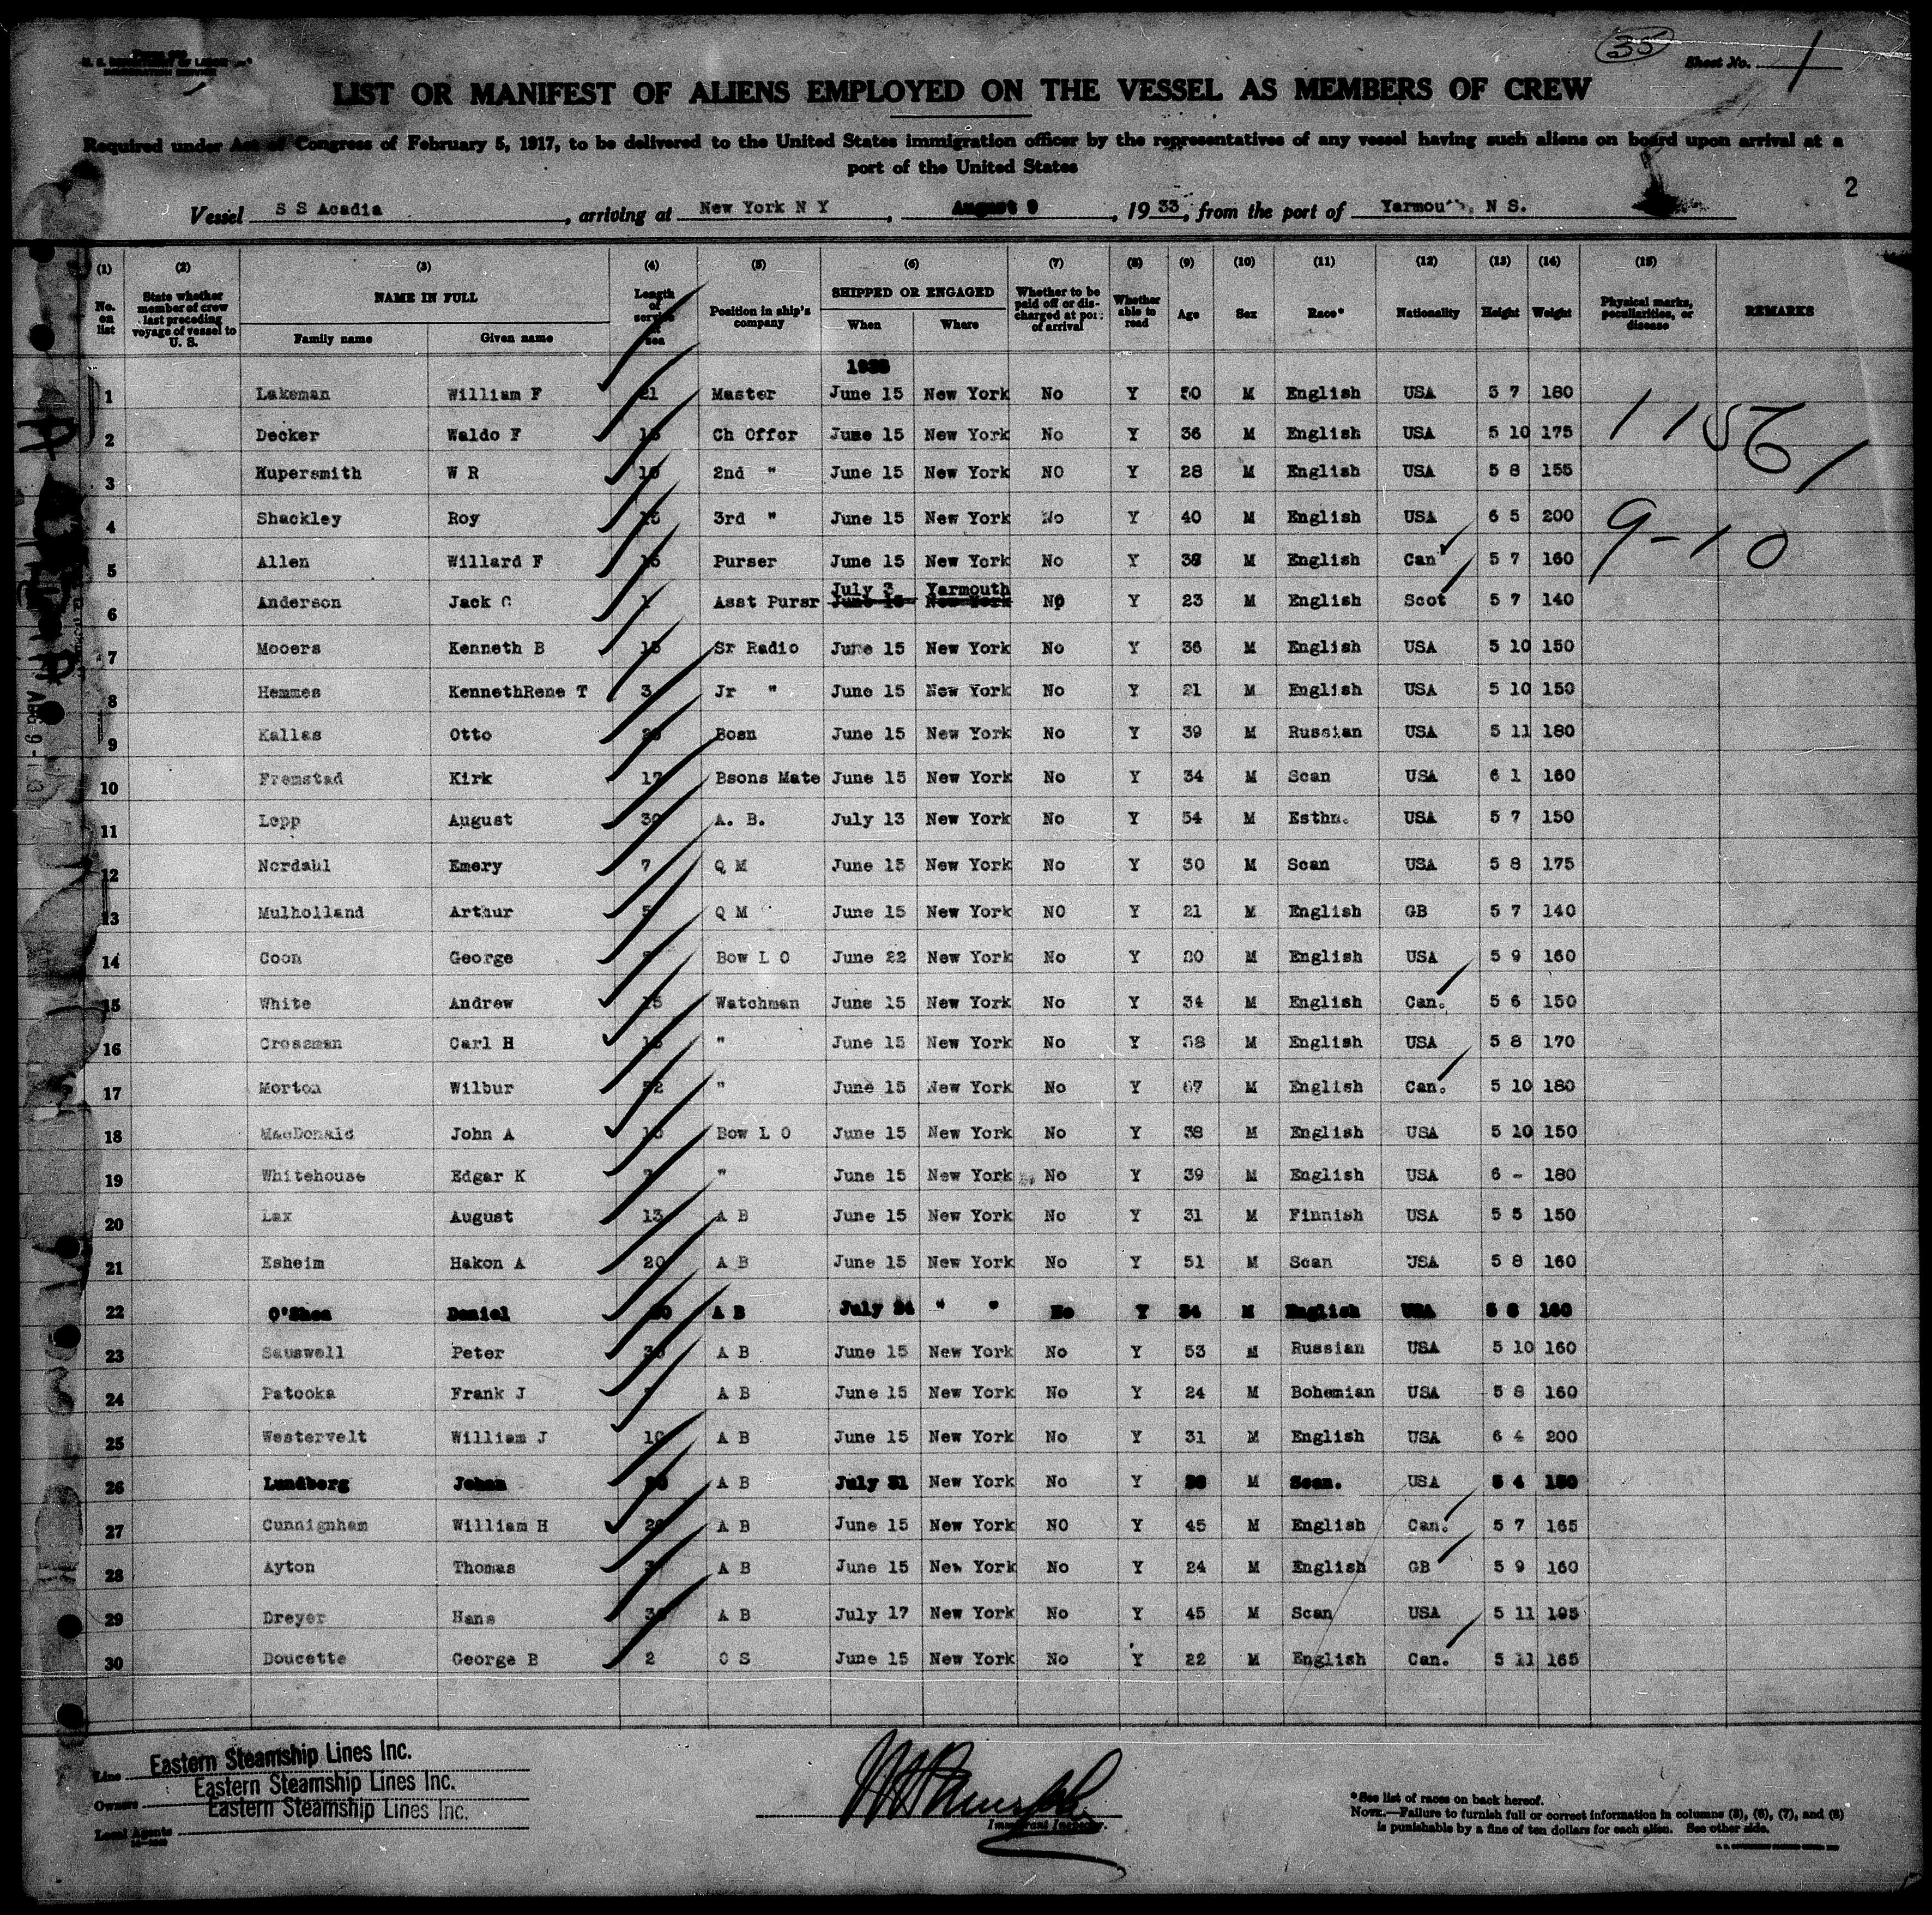 35
Sheet No. 1
U. S. DEPARTMENT OF LABOR
IMMIGRATION SERVICE
LIST OR MANIFEST OF ALIENS EMPLOYED ON THE VESSEL AS MEMBERS OF CREW
Required under Act of Congress of February 5, 1917, to be delivered to the United States immigration officer by the representatives of any vessel having such aliens on board upon arrival at a
port of the United States
2
Vessel S S Acadia, arriving at New York N Y, August 9, 1933, from the port of Yarmouth, N S.
(1) (2) (3) (4) (5) (6) (7) (8) (9) (10) (11) (12) (13) (14) (15)
No. on list State whether member of crew last preceding voyage of vessel to U. S. NAME IN FULL Family name Given name Length of service at sea Position in ship's company SHIPPED OR ENGAGED When Where Whether to be paid off or discharged at port of arrival Whether able to read Age Sex Race* Nationality Height Weight Physical marks, peculiarities, or disease REMARKS
1933
1 Lakeman William F 21 Master June 15 New York No Y 50 M English USA 5 7 180
2 Decker Waldo F Ch Offcr June 15 New York No Y 36 M English USA 5 10 175
3 Kupersmith W R 10 2nd " June 15 New York NO Y 28 M English USA 5 8 155
4 Shackley Roy 15 3rd " June 15 New York No Y 40 M English USA 6 5 200
5 Allen Willard F 15 Purser June 15 New York No Y 38 M English Can 5 7 160
July 3 Yarmouth
6 Anderson Jack G 1 Asst Pursr June 15 New York No Y 23 M English Scot 5 7 140
7 Mooers Kenneth B 15 Sr Radio June 15 New York No Y 36 M English USA 5 10 150
8 Hemmes KennethRene T 3 Jr " June 15 New York No Y 21 M English USA 5 10 150
9 Kallas Otto Bosn June 15 New York No Y 39 M Russian USA 5 11 180
10 Fremstad Kirk 17 Bsons Mate June 15 New York No Y 34 M Scan USA 6 1 160
11 Lopp August 30 A. B. July 13 New York No Y 54 M Esthn. USA 5 7 150
12 Nordahl Emery 7 Q M June 15 New York No Y 30 M Scan USA 5 8 175
13 Mulholland Arthur 5 Q M June 15 New York NO Y 21 M English GB 5 7 140
14 Coon George Bow L O June 22 New York No Y 20 M English USA 5 9 160
15 White Andrew 15 Watchman June 15 New York No Y 34 M English Can. 5 6 150
16 Crossman Carl H " June 15 New York No Y 38 M English USA 5 8 170
17 Morton Wilbur " June 15 New York No Y 67 M English Can. 5 10 180
18 MacDonald John A Bow L O June 15 New York No Y 38 M English USA 5 10 150
19 Whitehouse Edgar K 7 " June 15 New York No Y 39 M English USA 6 - 180
20 Lax August 13 A B June 15 New York No Y 31 M Finnish USA 5 5 150
21 Esheim Hakon A 20 A B June 15 New York No Y 51 M Scan USA 5 8 160
22 O'Shea Daniel A B July 24 " " No Y 34 M English USA 5 8 160
23 Sauswell Peter A B June 15 New York No Y 53 M Russian USA 5 10 160
24 Patocka Frank J A B June 15 New York No Y 24 M Bohemian USA 5 8 160
25 Westervelt William J 10 A B June 15 New York No Y 31 M English USA 6 4 200
26 Lundberg Johan A B July 31 New York No Y M Scan. USA 5 4 150
27 Cunnignham William H A B June 15 New York NO Y 45 M English Can. 5 7 165
28 Ayton Thomas A B June 15 New York No Y 24 M English GB 5 9 160
29 Dreyer Hans A B July 17 New York No Y 45 M Scan USA 5 11 195
30 Doucette George B 2 O S June 15 New York No Y 22 M English Can. 5 11 165
9-10
Line Eastern Steamship Lines Inc.
Owners Eastern Steamship Lines Inc.
Local Agents Eastern Steamship Lines Inc.
Immigrant Inspector.
*See list of races on back hereof.
NOTE.—Failure to furnish full or correct information in columns (3), (6), (7), and (8)
is punishable by a fine of ten dollars for each alien. See other side.